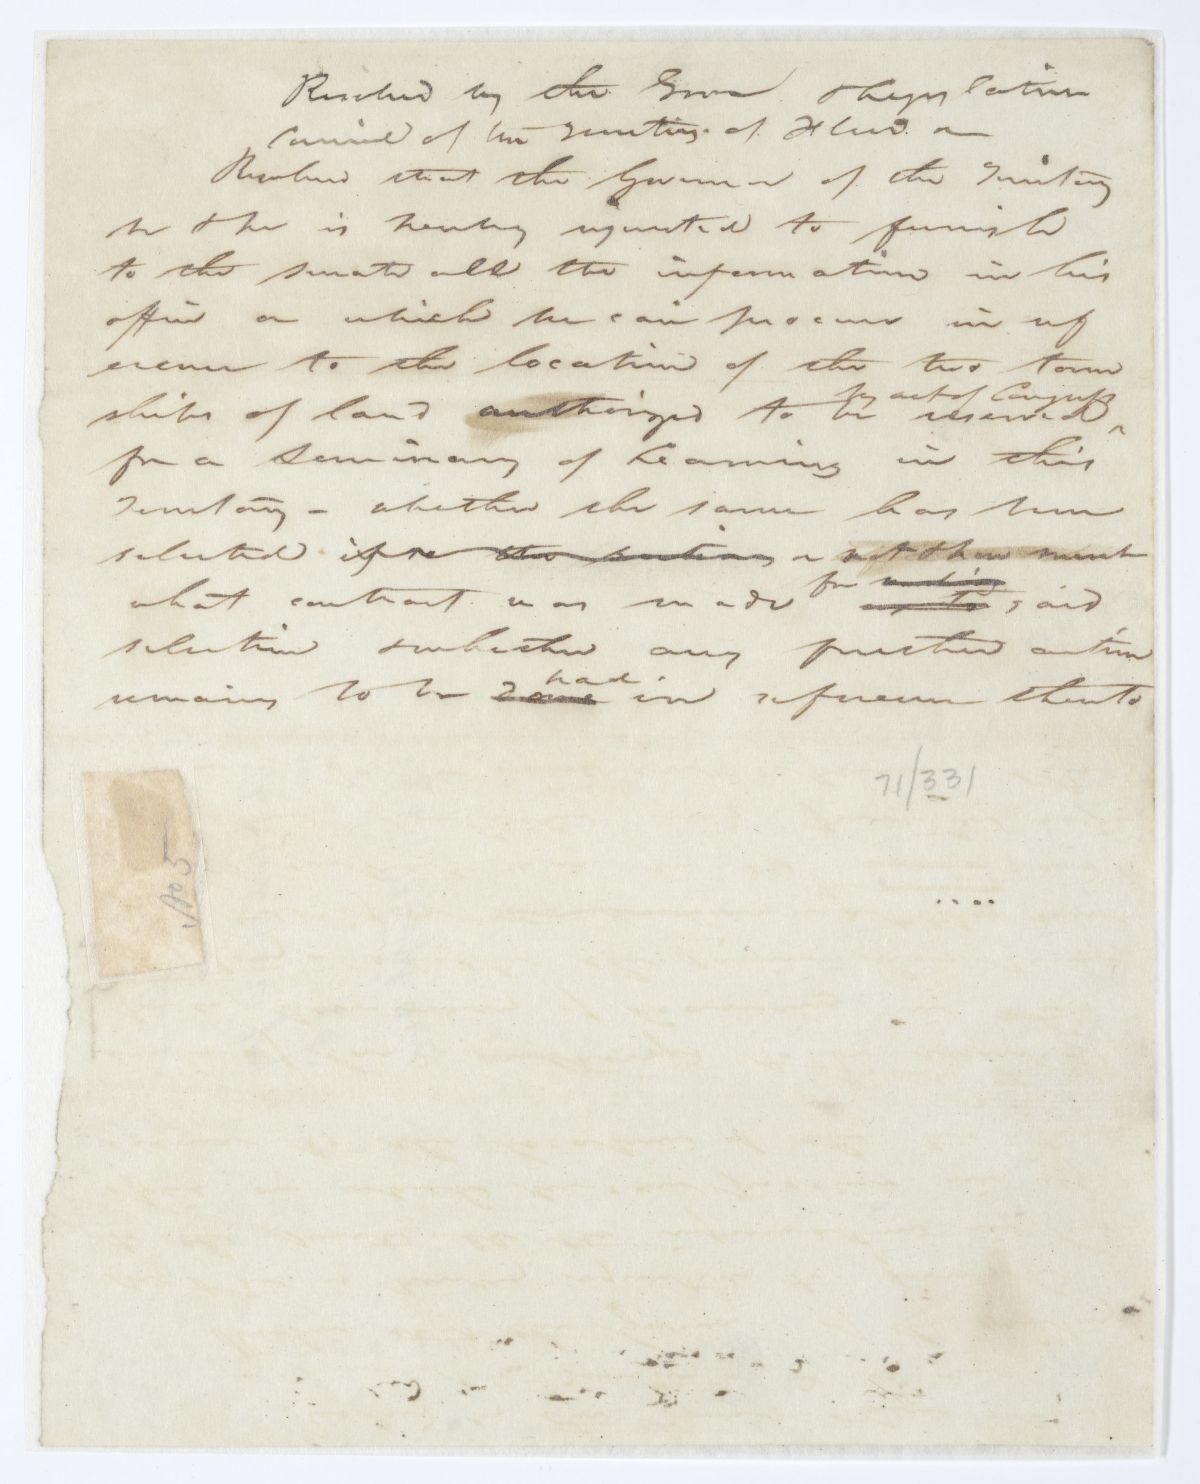 Resolved by the Gover & Legislative
Council of the Territory of Florida
Resolved that the Governor of the Territory
be & he is hereby requested to furnish
to the senate all the information in his
office or which he can procure in ref
erence to the location of the two town
by act of Congress
ships of land authorized to be reserved
for a Seminary of Learning in this
Territory - whether the same has been
selected or not &
for
what contract was made said
selection & whether any further action
had
remains to be done in reference thereto
71/331
No 5